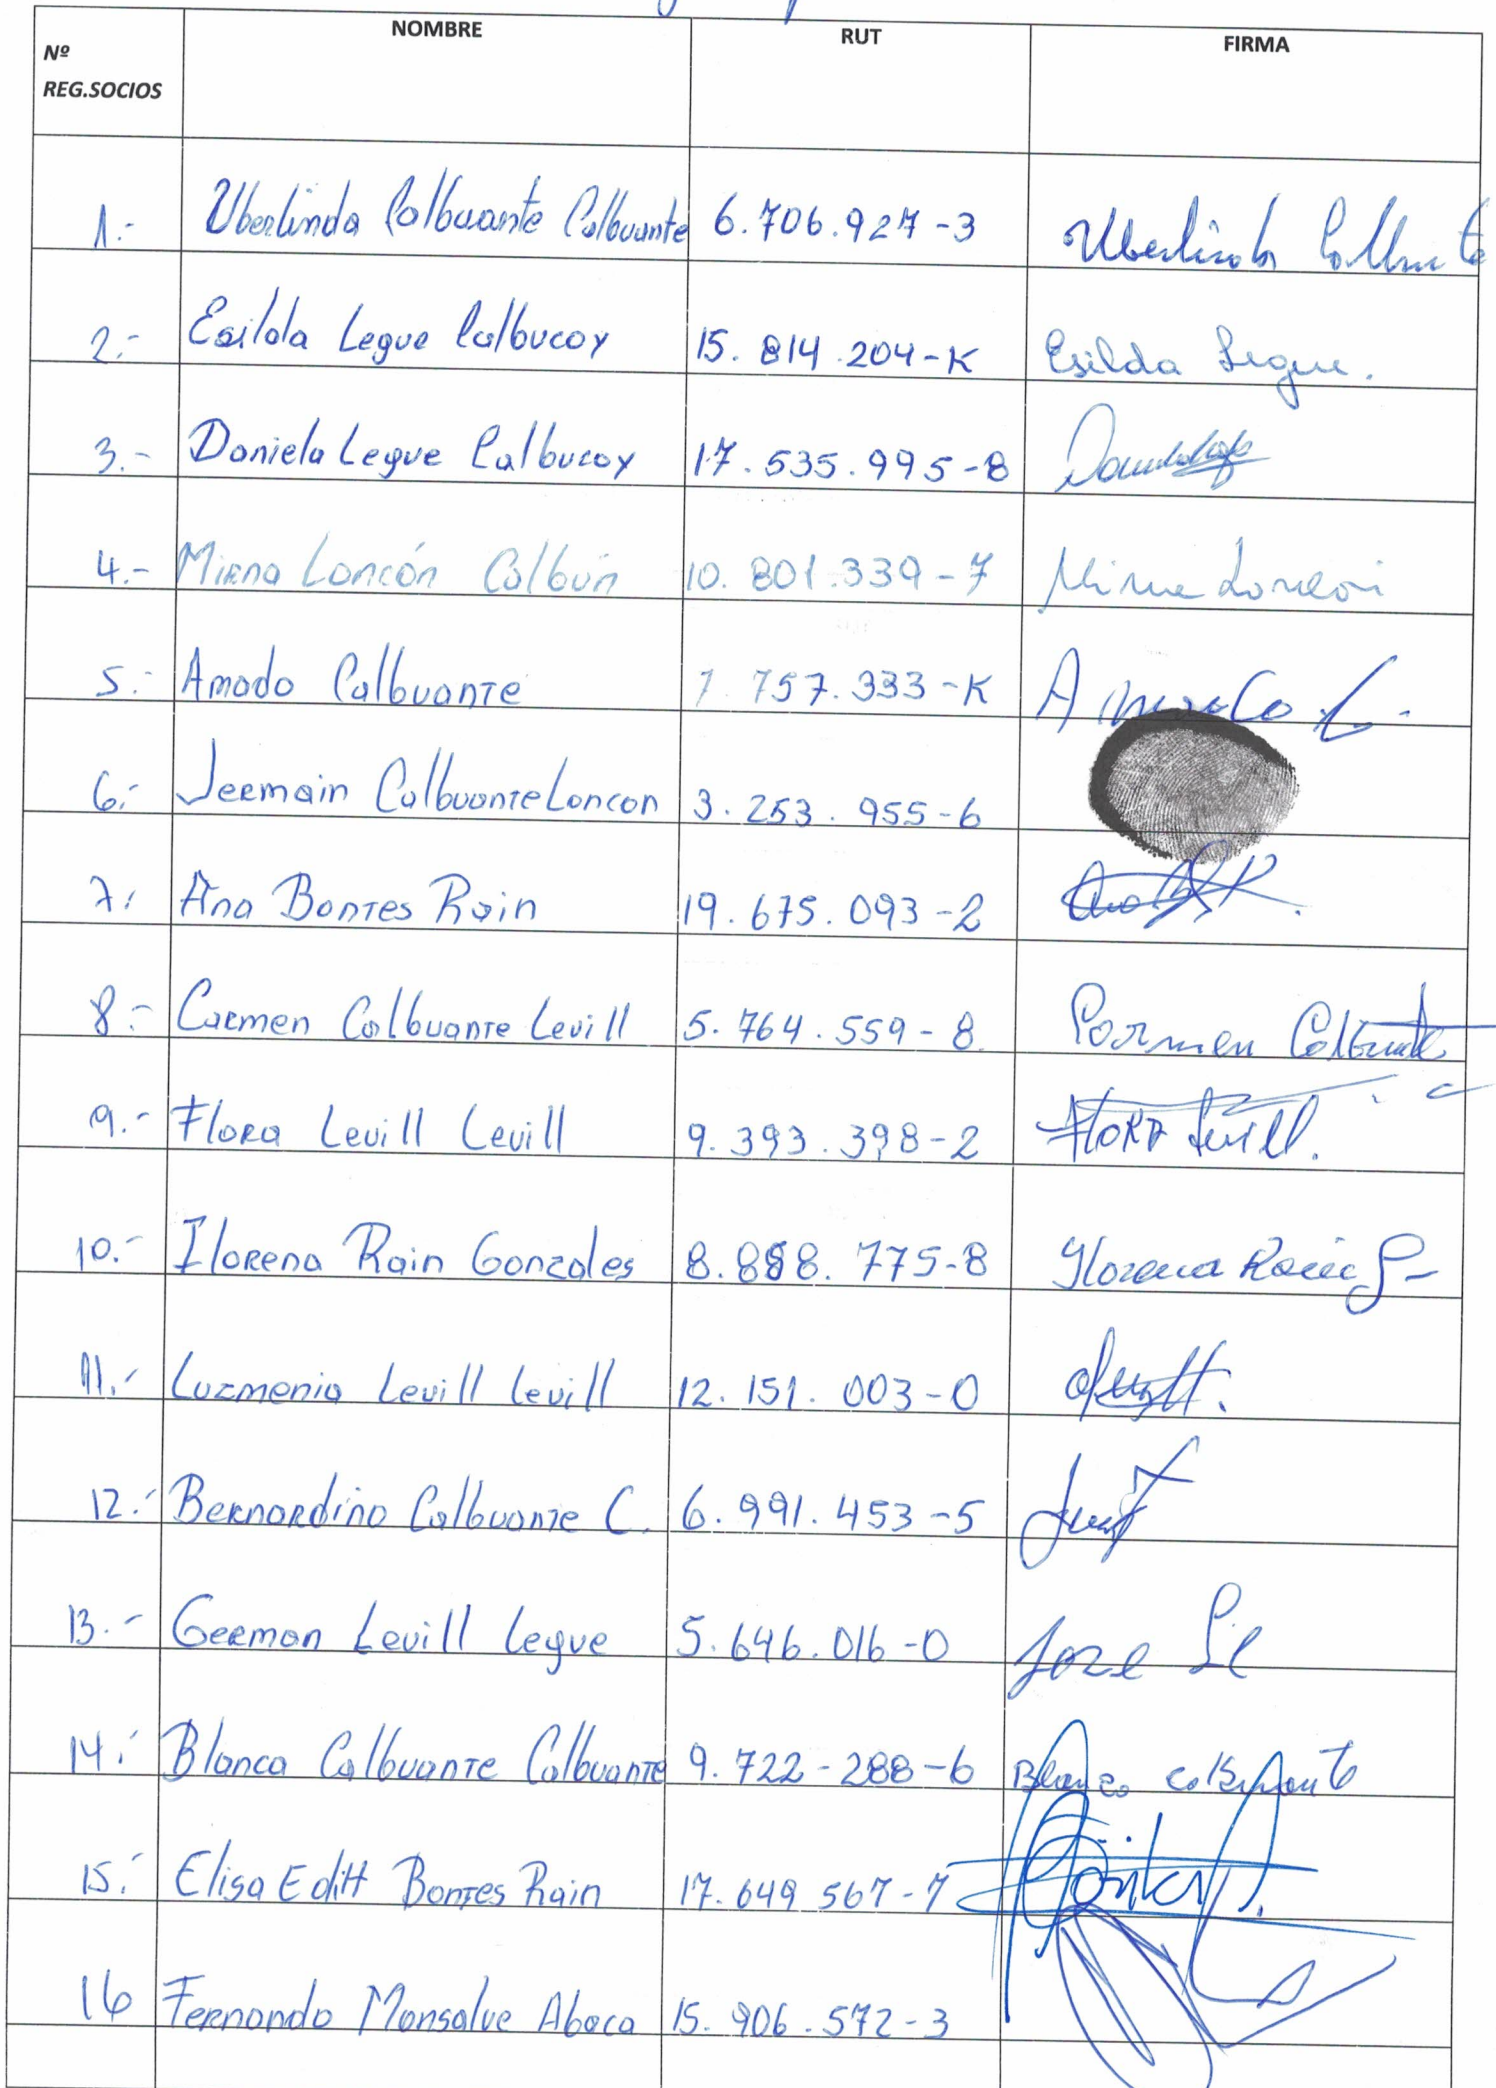 Nº REG.SOCIOS NOMBRE RUT FIRMA
1.- Uberlinda Calbuante Calbuante 6.706.927-3 Uberlinda Calbuante
2.- Esilda Legue Calbucoy 15.814.204-K Esilda Legue.
3.- Daniela Legue Calbucoy 17.535.995-8
4.- Mirna Loncón Calbún 10.801.339-7 Mirna Loncon
5.- Amado Calbuante 7.757.333-K Amado C.-
6.- Jermain Calbuante Loncon 3.253.955-6
7.- Ana Bontes Rain 19.675.093-2
8.- Carmen Calbuante Levill 5.764.559-8 Carmen Calbuante
9.- Flora Levill Levill 9.393.398-2 Flora Levill.
10.- Ilorena Rain Gonzales 8.888.775-8 Ilorena Rain G-
11.- Luzmenia Levill Levill 12.151.003-0
12.- Bernardino Calbuante C. 6.991.453-5
13.- German Levill Legue 5.646.016-0 Joze
14.- Blanca Calbuante Calbuante 9.722-288-6 Blanca calbuante
15.- Elisa Editt Bontes Rain 17.649 567-7
16 Fernando Monsalve Abaca 15.906.572-3